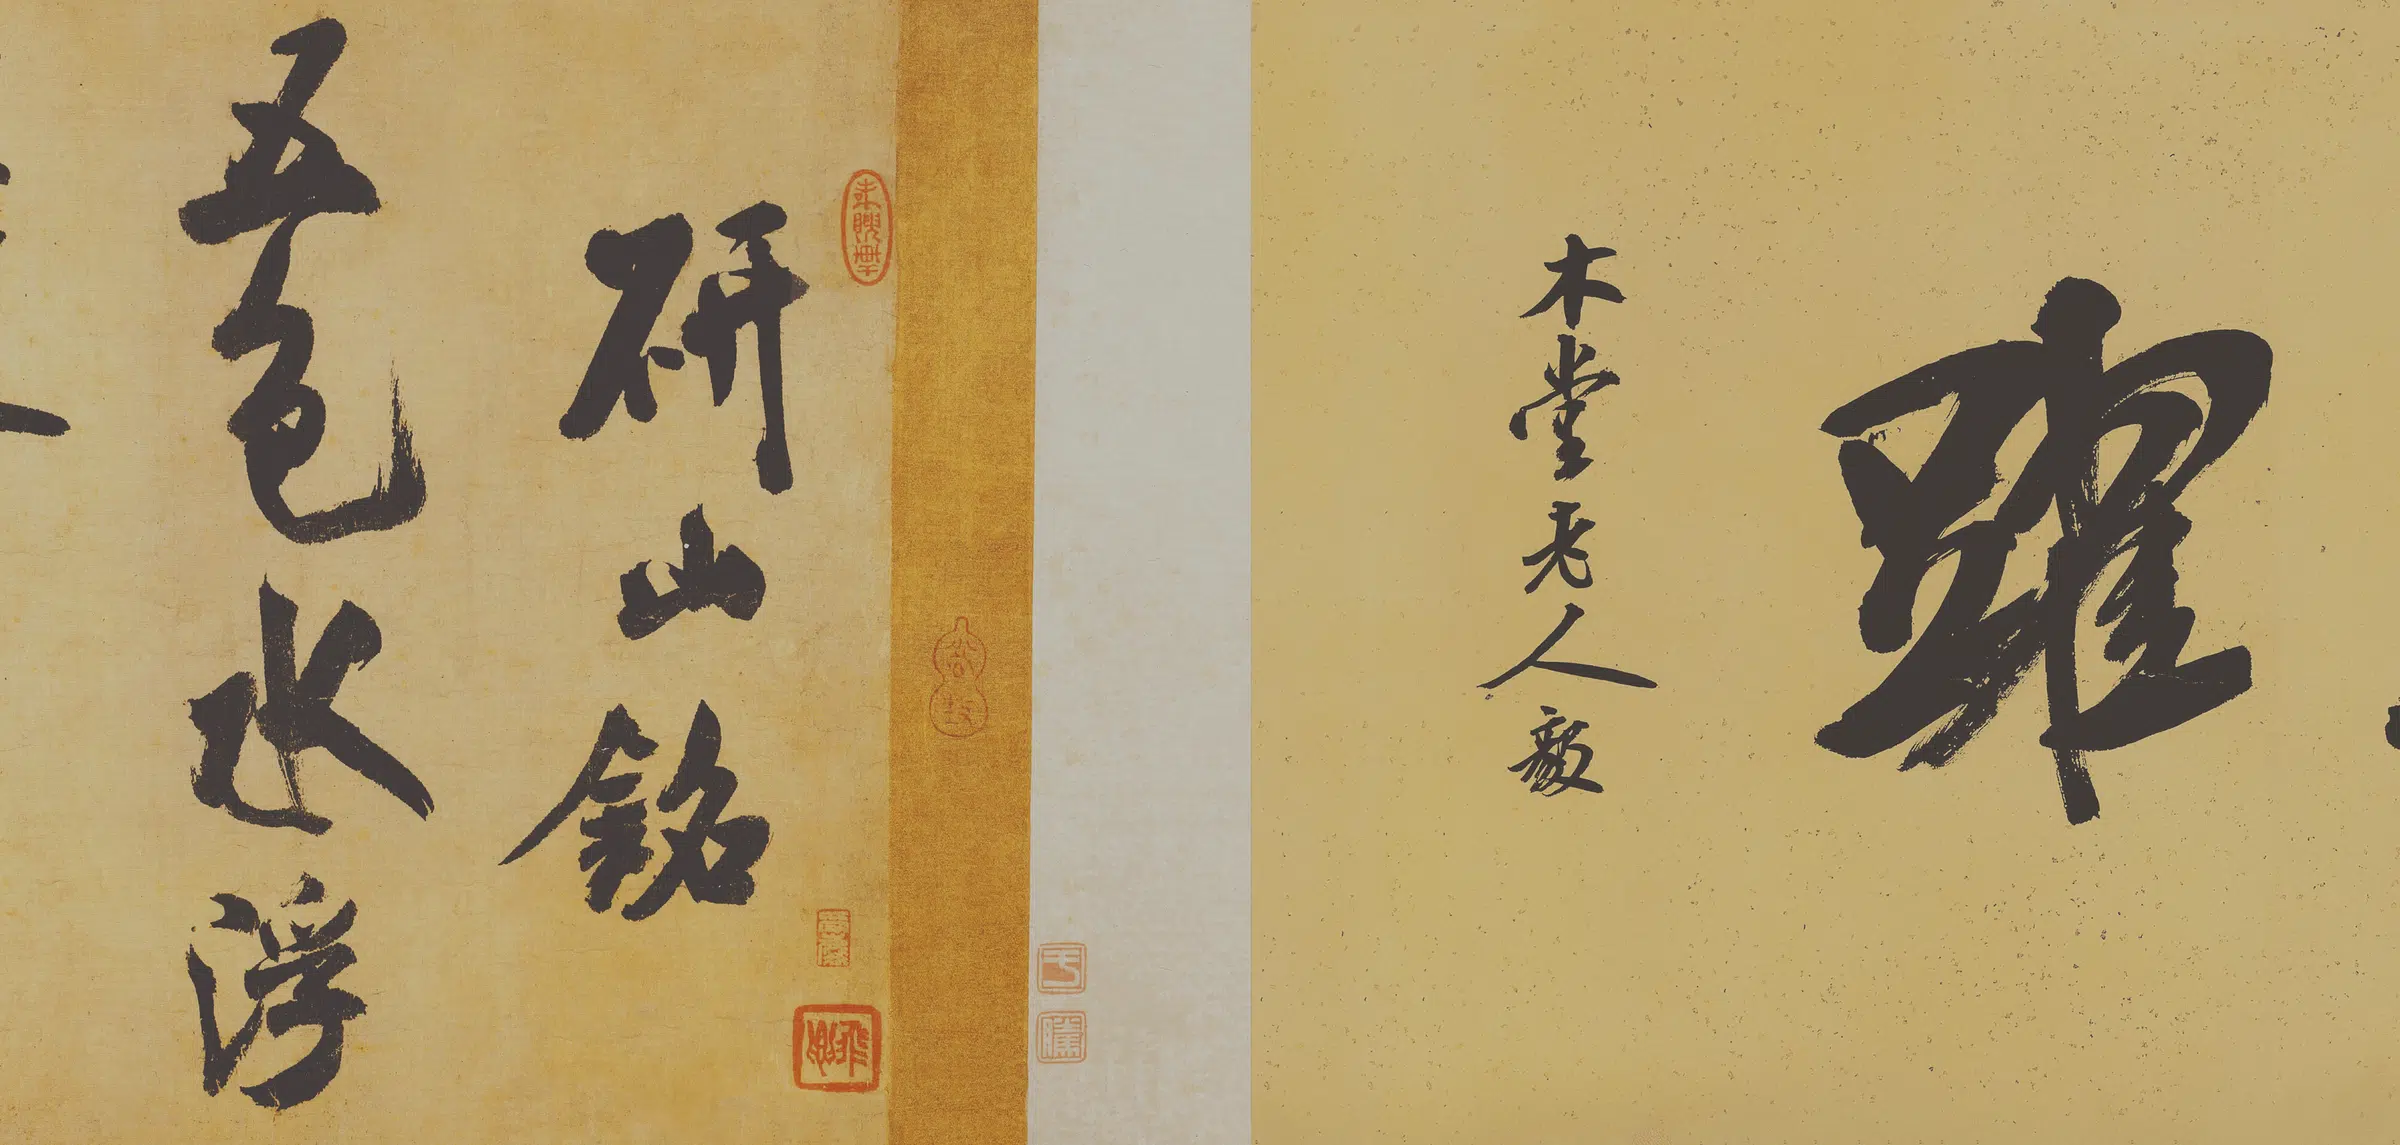 躍
木堂老人毅
研山銘
五色水浮